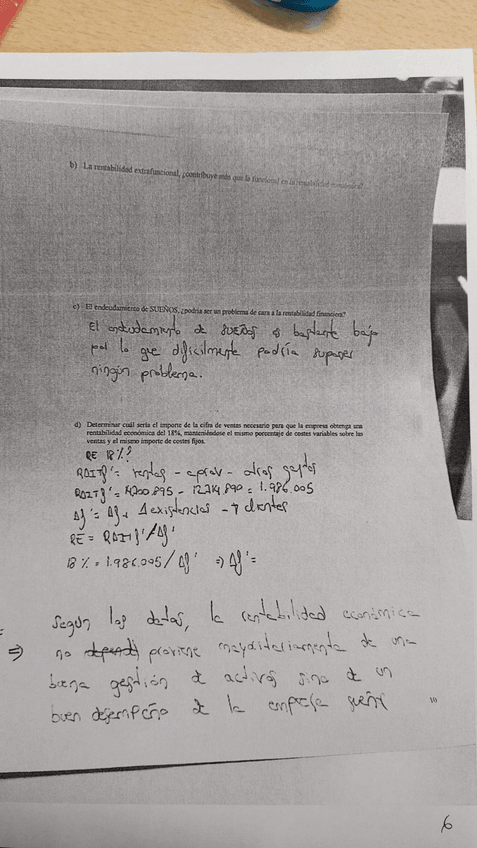 b) La rentabilidad extrafuncional, ¿contribuye más que la funcional en la rentabilidad económica?
c) El endeudamiento de SUEÑOS, ¿podría ser un problema de cara a la rentabilidad financiera?
El endeudamiento de SUEÑOS es bastante bajo
por lo que dificilmente podría suponer
ningún problema.
d) Determinar cuál sería el importe de la cifra de ventas necesario para que la empresa obtenga una
rentabilidad económica del 18%, manteniéndose el mismo porcentaje de costes variables sobre las
ventas y el mismo importe de costes fijos.
RE 18%?
RAITf' = ventas - aprov - otros gastos
RAITf' = 14200.895 - 12.214.890 = 1.986.005
Af' = Af + Δ existencias - 7 clientes
RE = RAITf'/Af'
18% = 1.986.005/Af' => Af' =
Según los datos, la rentabilidad económica
=> no proviene mayoritariamente de una
buena gestión de activos sino de un
buen desempeño de la empresa
10
6